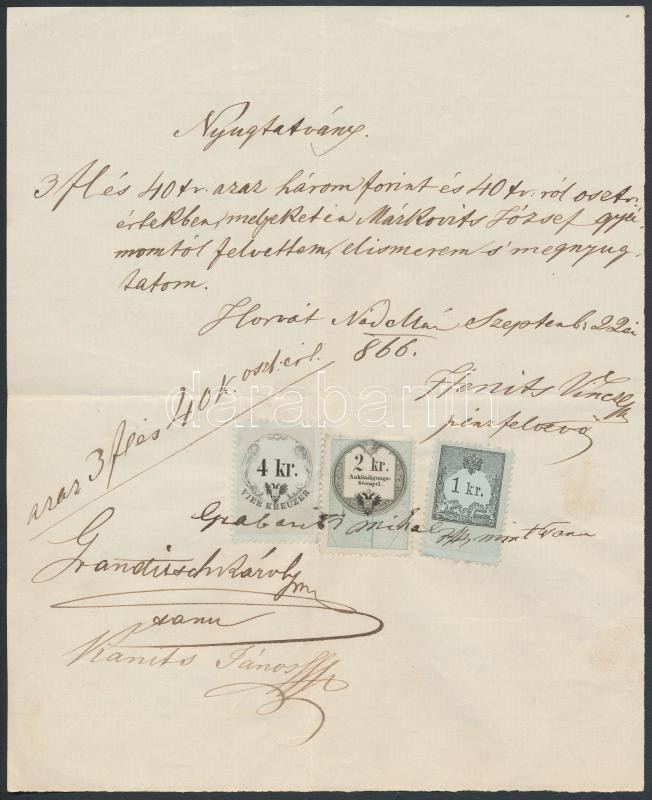 Nyugtatvány.
3 fl és 40 kr. azaz három forint és 40 kr. ról osztr.
értékben, melyeket én Márkovits József gyá-
momtól felvettem, elismerem s' megnyug-
tatom.
Horvát Szeptemb: 22én
866.
azaz 3 fl és 40 k. oszt. ért.
Vincze
pénzfelvevő
darabanth
4 kr.
VIER KREUZER
2 kr.
Ankündigungs-
Stempel.
1 kr.
mint tanu
Grandtsch Károly
tanu
Kanits János